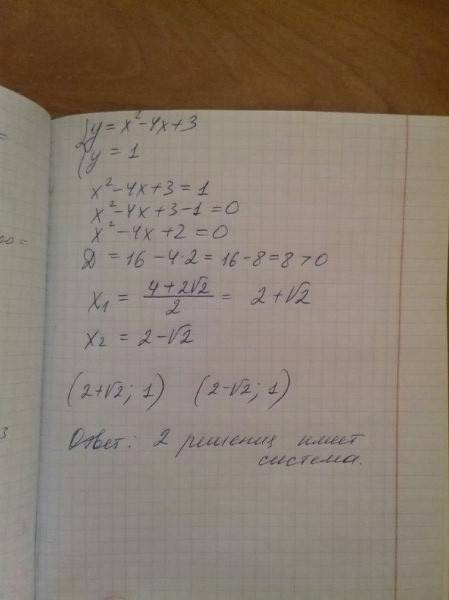 {y = x²-4x+3
{y = 1
x²-4x+3 = 1
x²-4x+3-1=0
x²-4x+2=0
Д = 16-4·2 = 16-8=8>0
x₁ = (4+2√2)/2 = 2+√2
x₂ = 2-√2
(2+√2; 1) (2-√2; 1)
Ответ: 2 решения имеет
система.